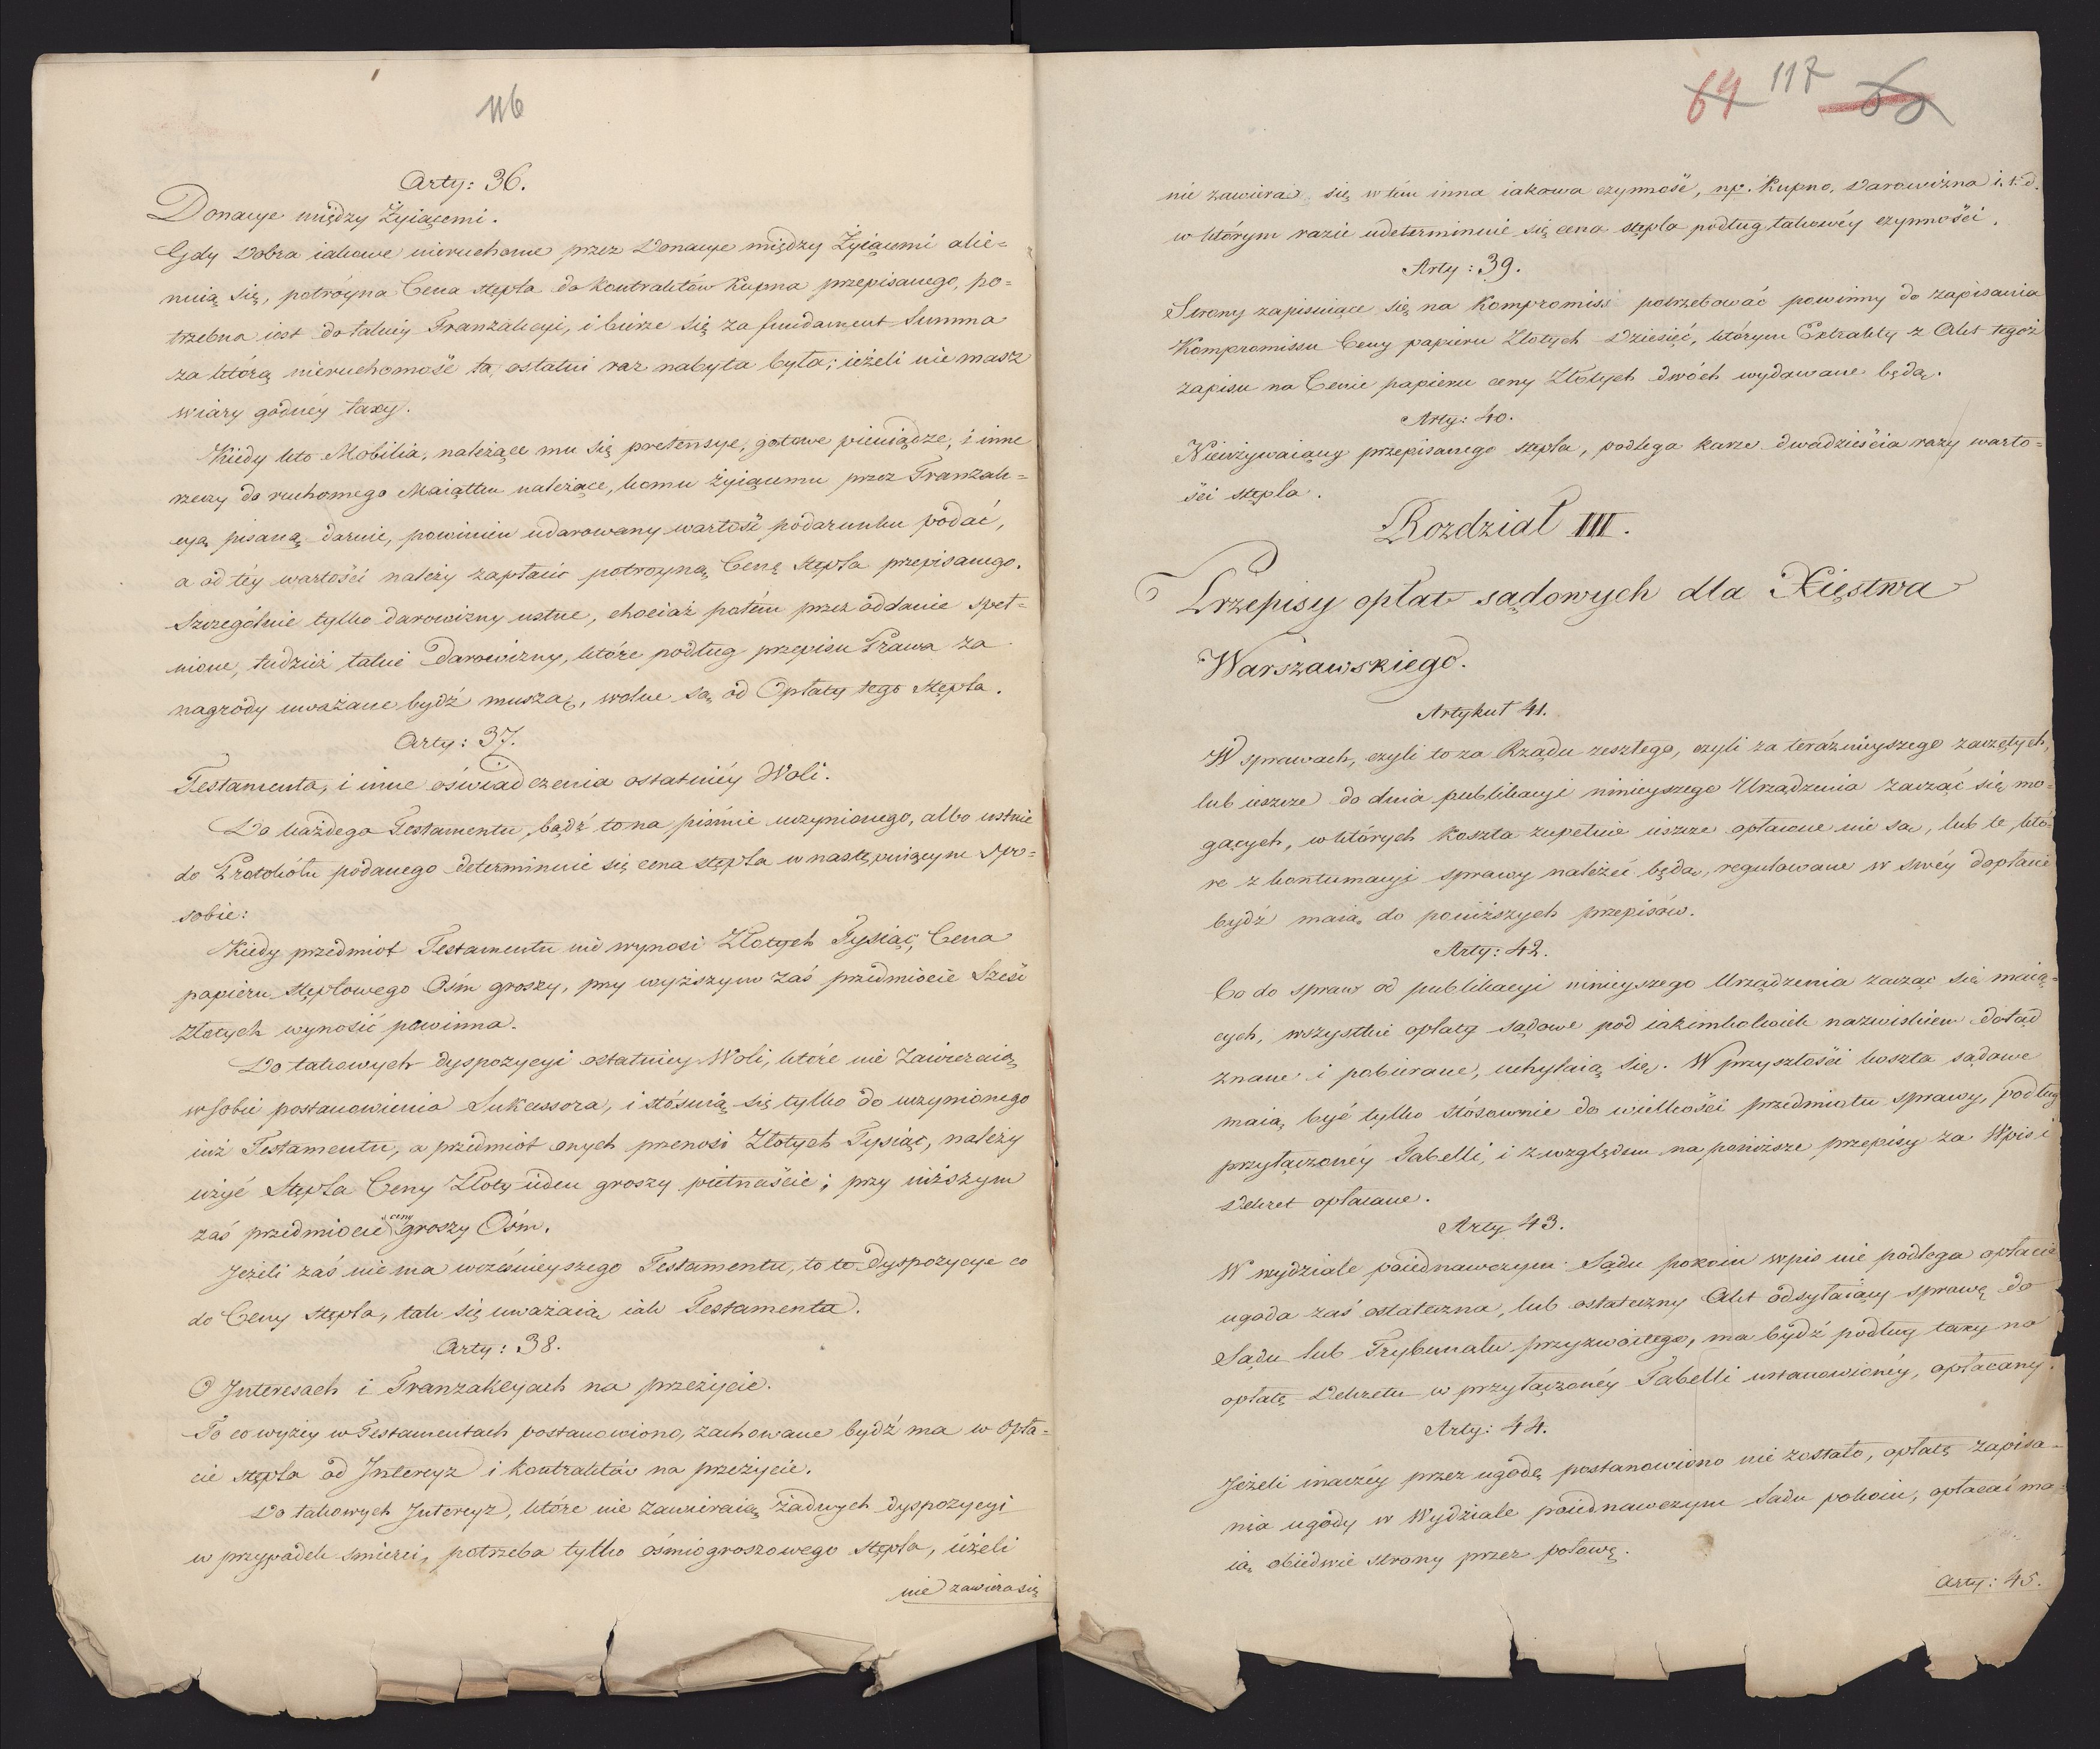 116
Arty: 36.
Donacye między Żyiącemi.
Gdy Dobra iakowe nieruchome przez Donacye między Żyiącemi alie=
nuią się, potróyna Cena stępla do kontraktów Kupna przepisanego, po=
trzebna iest do takiey Tranzakcyi, i bierze się za fundament Summa
za którą nieruchomość ta, ostatni raz nabyta była; ieżeli nie masz
wiary godnéy taxy.
Kiedy kto Mobilia, należące mu się pretensye, gotowe pieniądze, i inne
rzeczy do ruchomego Maiątku należące, komu żyiącemu przez Tranzak=
cyą pisaną daruie, powinien udarowany wartość podarunku podać,
a od téy wartości należy zapłacić potroyną Cenę Stępla przepisanego.
Szczególnie tylko darowizny ustne, chociaż potém przez oddanie speł=
nione, tudzież takie Darowizny, które podług przepisu Prawa za
nagrody uważane bydź muszą, wolne są od Opłaty tego Stępla.
Arty: 37.
Testamenta, i inne oświadczenia ostatniéy Woli.
Do każdego Testamentu, bądź to na piśmie uczynionego, albo ustnie
do Protokółu podanego determinuie się cena stępla w następuiącym spo=
sobie:
Kiedy przedmiot Testamentu nie wynosi Złotych Tysiąc, Cena
papieru stęplowego Ośm groszy, przy wyższym zaś przedmiocie Sześć
złotych wynosić powinna.
Do takowych dyspozycyi ostatniey Woli, które nie zawieraią
w sobie postanowienia Sukcessora, i stósuią się tylko do uczynionego
iuż Testamentu, a przedmiot onych przenosi Złotych Tysiąc, należy
użyć Stępla Ceny Złoty ieden groszy piętnaście; przy niższym
zaś przedmiocie ceny groszy Ośm.
Jeżeli zaś niema wcześnieyszego Testamentu, to te Dyspozycye co
do Ceny stępla, tak się uważaią iak Testamenta.
Arty: 38.
O Interesach i Tranzakcyach na przeżycie.
To co wyżey w Testamentach postanowiono, zachowane bydź ma w opła=
cie stępla od Intercyz i kontraktów na przeżycie.
Do takowych Intercyz, które nie zawieraią żadnych dyspozycyi
w przypadek śmierci, potrzeba tylko ośmiogroszowego Stępla, ieżeli
nie zawiera się
64 117
nie zawiera się w tém inna iakowa czynność, np. Kupno, Darowizna i. t. d.
w którym razie udeterminuie się cena stępla podług takowéy czynności.
Arty: 39.
Strony zapisuiące się na Kompromiss potrzebować powinny do zapisania
Kompromissu Ceny papieru Złotych Dziesięć, którym Extrakty z Akt tegoż
zapisu na Cenie papieru ceny Złotych dwóch wydawane będą.
Arty: 40.
Nieużywaiący przepisanego stępla, podlega karze dwadzieścia razy warto=
ści stępla.
Rozdział III.
Przepisy opłat sądowych dla Xięstwa
Warszawskiego.
Artykuł 41.
W sprawach, czyli to za Rządu zeszłego, czyli za teráznieyszego zaczętych,
lub ieszcze do dnia publikacyi ninieyszego Urządzenia zacząć się mo=
gących, w których koszta zupełnie ieszcze opłacone nie są, lub te, któ=
re z kontumacyi sprawy należeć będą, regulowane w swéy dopłacie
bydź maią do poniższych przepisów.
Arty: 42.
Co do spraw od publikacyi ninieyszego Urządzenia zacząć się maią=
cych, wszystkie opłaty sądowe pod iakimkolwiek nazwiskiem dotąd
znane i pobierane, uchylaią się. W przyszłości koszta sądowe
maią być tylko stósownie do wielkości przedmiotu sprawy, podług
przyłączonéy Tabelli, i z względem na poniższe przepisy za Wpis i
Dekret opłacane.
Arty 43.
W wydziale poiednawczym Sądu pokoiu wpis nie podlega opłacie
ugoda zaś ostateczna, lub ostateczny Akt odsyłaiący sprawę do
Sądu lub Trybunału przyzwoitego, ma bydź podług taxy na
opłatę Dekretu w przyłączonéy Tabelli ustanowionéy, opłacany.
Arty: 44.
Jeżeli inaczéy przez ugodę postanowiono nie zostało, opłatę zapisa=
nia ugody w Wydziale poiednawczym Sądu pokoiu, opłacać ma=
ią obiedwie strony przez połowę.
Arty: 45.